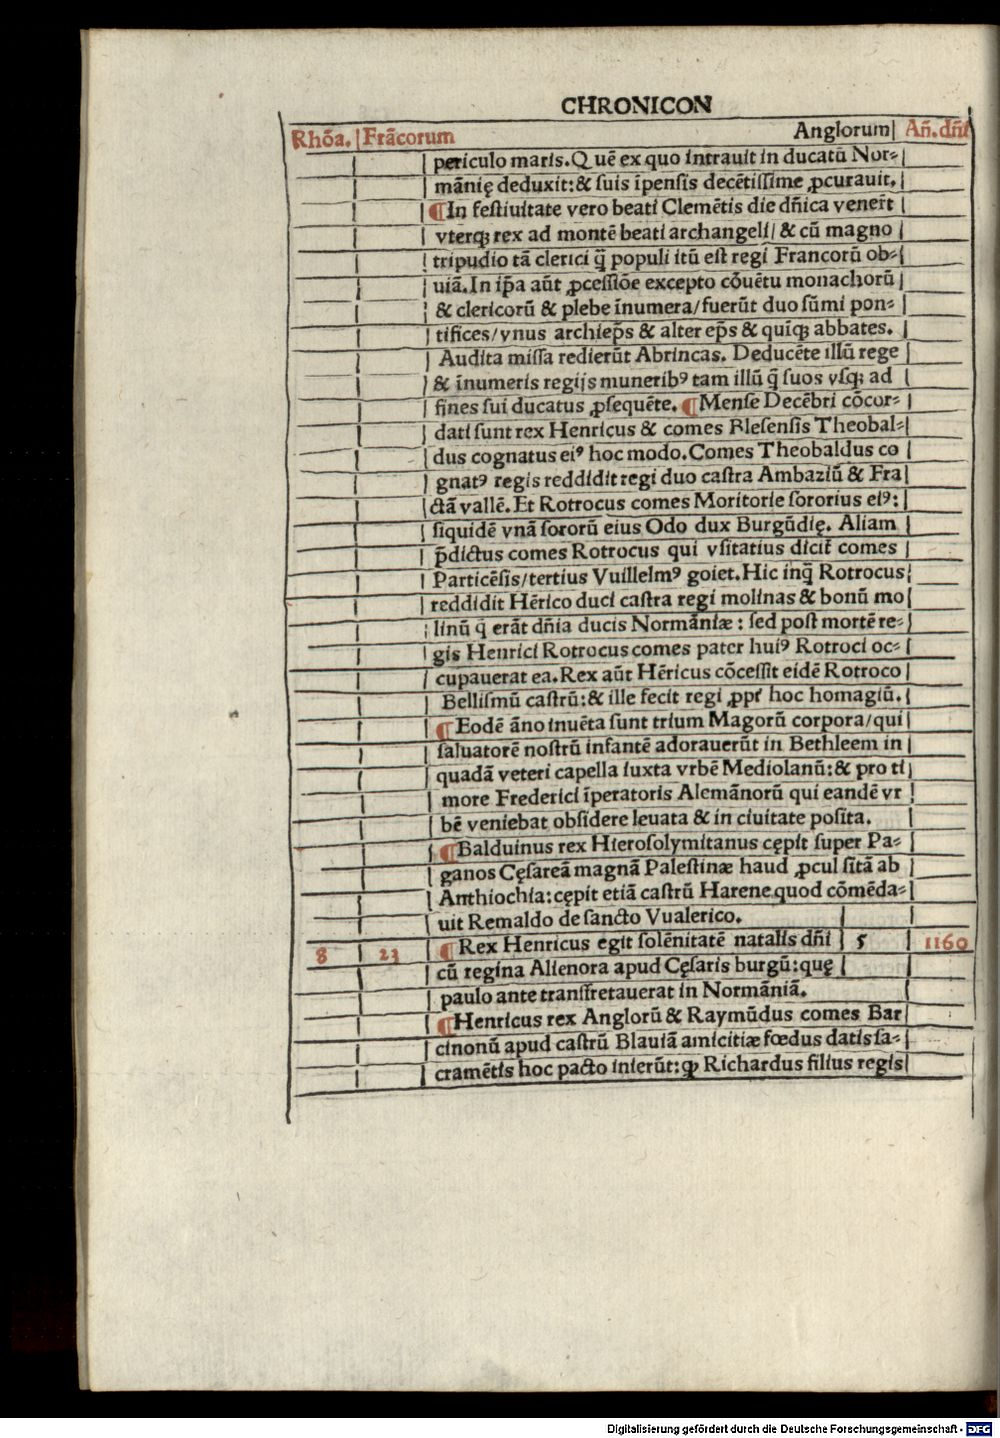 CHRONICON
Rhõa. Frãcorum Anglorum Añ.dñi
periculo maris. Quẽ ex quo intrauit in ducatũ Nor-
mãnię deduxit: & suis ĩpensis decẽtissime ꝓcurauit.
¶In festiuitate vero beati Clemẽtis die dñica venert̃
vterqꝫ rex ad montẽ beati archangeli/ & cũ magno
tripudio tã clerici q̃ populi itũ est regi Francorũ ob-
uiã. In ip̃a aũt ꝓcessiõe excepto cõuẽtu monachorũ
& clericorũ & plebe ĩnumera/fuerũt duo sũmi pon-
tifices/vnus archiep̃s & alter ep̃s & quiqꝫ abbates.
Audita missa redierũt Abrincas. Deducẽte illũ rege
& ĩnumeris regijs muneribꝰ tam illũ q̃ suos vsqꝫ ad
fines sui ducatus ꝓsequẽte. ¶Mense Decẽbri cõcor-
dati sunt rex Henricus & comes Blesensis Theobal-
dus cognatus eiꝰ hoc modo. Comes Theobaldus co
gnatꝰ regis reddidit regi duo castra Ambaziũ & Fra
ctã vallẽ. Et Rotrocus comes Moritorie sororius eiꝰ:
siquidẽ vnã sororũ eius Odo dux Burgũdię. Aliam
p̃dictus comes Rotrocus qui vsitatius dicit̃ comes
Particẽsis/tertius Vuillelmꝰ goiet. Hic inq̃ Rotrocus
reddidit Hẽrico duci castra regi molinas & bonũ mo
linũ q̃ erãt dñia ducis Normãniæ: sed post mortẽ re-
gis Henrici Rotrocus comes pater huiꝰ Rotroci oc-
cupauerat ea. Rex aũt Hẽricus cõcessit eidẽ Rotroco
Bellismũ castrũ: & ille fecit regi ꝓpt̃ hoc homagiũ.
¶Eodẽ ãno inuẽta sunt trium Magorũ corpora/qui
saluatorẽ nostrũ infantẽ adorauerũt in Bethleem in
quadã veteri capella iuxta vrbẽ Mediolanũ: & pro ti
more Frederici ĩperatoris Alemãnorũ qui eandẽ vr
bẽ veniebat obsidere leuata & in ciuitate posita.
¶Balduinus rex Hierosolymitanus cępit super Pa-
ganos Cęsareã magnã Palestinæ haud ꝓcul sitã ab
Anthiochia: cępit etiã castrũ Harene quod cõmẽda-
uit Remaldo de sancto Vualerico.
8 23 ¶Rex Henricus egit solẽnitatẽ natalis dñi 5 1160
cũ regina Alienora apud Cęsaris burgũ: quę
paulo ante transfretauerat in Normãniã.
¶Henricus rex Anglorũ & Raymũdus comes Bar
cinonũ apud castrũ Blauiã amicitiæ fœdus datis sa-
cramẽtis hoc pacto inierũt: ꝙ Richardus filius regis
Digitalisierung gefördert durch die Deutsche Forschungsgemeinschaft - DFG